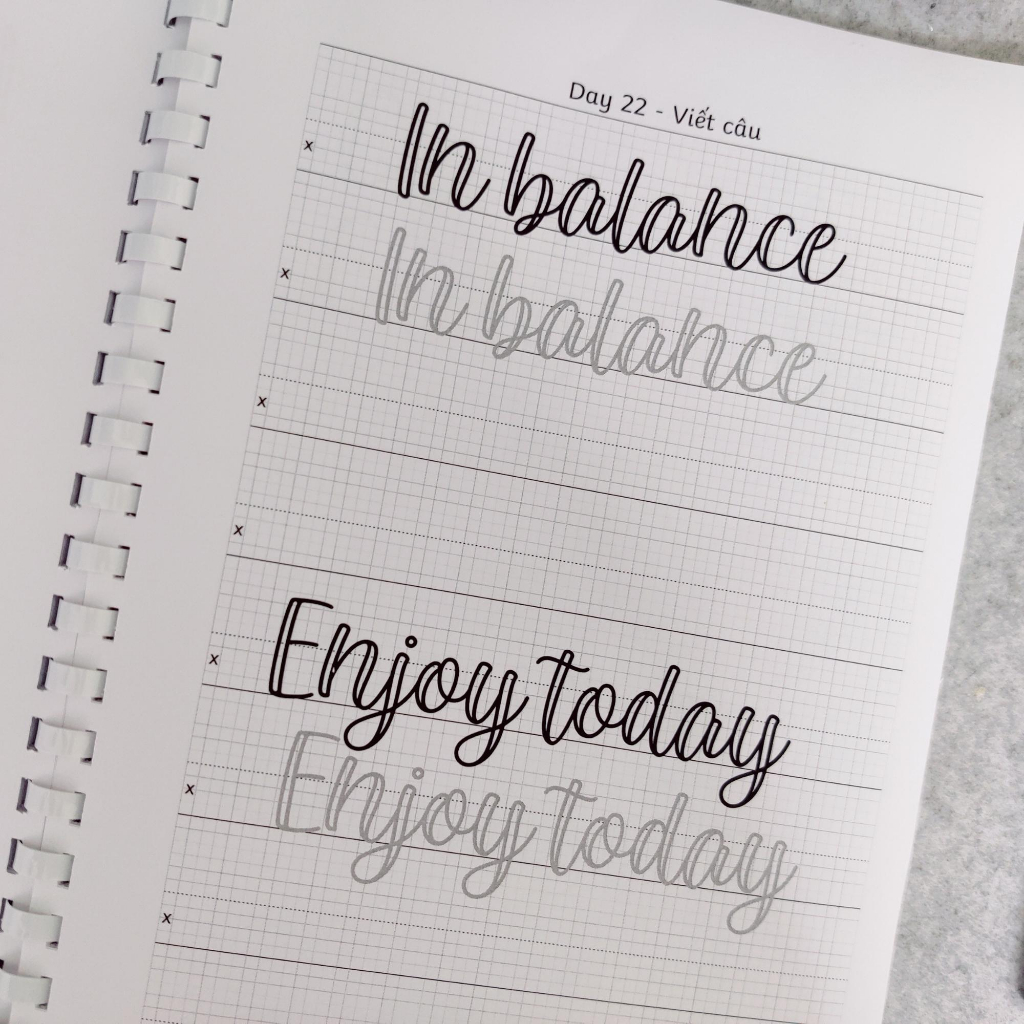 Day 22 - Viết câu
In balance
x
In balance
x
x
x
Enjoy today
x
Enjoy today
x
x